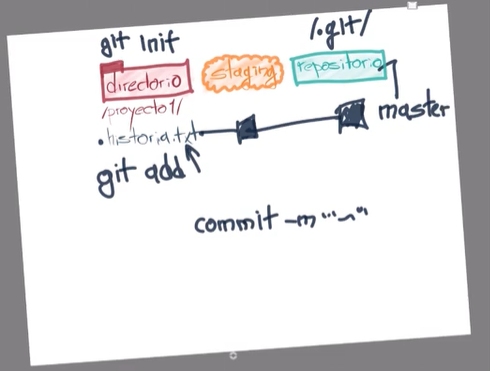 git init
/.git/
directorio
staging
repositorio
/proyecto1/
master
.historia.txt
git add
commit -m "~"